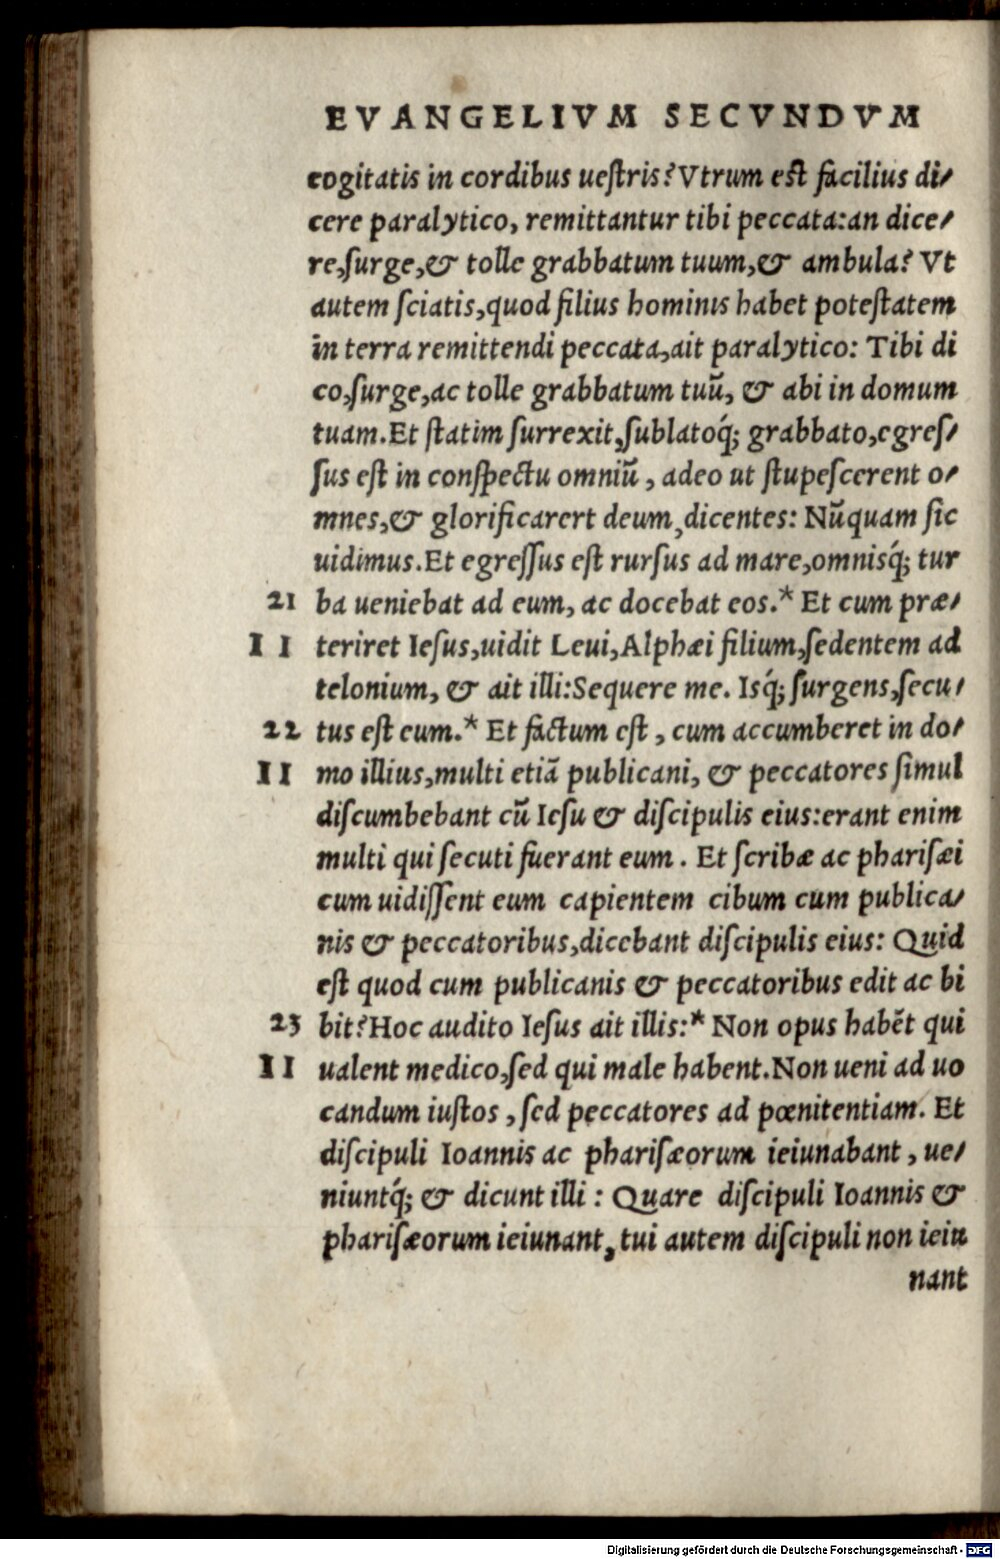 EVANGELIVM SECVNDVM
cogitatis in cordibus ueſtris? Vtrum eſt facilius di⸗
cere paralytico, remittantur tibi peccata: an dice⸗
re, ſurge, & tolle grabbatum tuum, & ambula? Vt
autem ſciatis, quod filius hominis habet poteſtatem
in terra remittendi peccata, ait paralytico: Tibi di
co, ſurge, ac tolle grabbatum tuū, & abi in domum
tuam. Et ſtatim ſurrexit, ſublatoq́; grabbato, egreſ⸗
ſus eſt in conſpectu omniū, adeo ut ſtupeſcerent o⸗
mnes, & glorificarert deum, dicentes: Nūquam ſic
uidimus. Et egreſſus eſt rurſus ad mare, omnisq́; tur
21 ba ueniebat ad eum, ac docebat eos.* Et cum præ⸗
II teriret Ieſus, uidit Leui, Alphæi filium, ſedentem ad
telonium, & ait illi: Sequere me. Isq́; ſurgens, ſecu⸗
22 tus eſt eum.* Et factum eſt, cum accumberet in do⸗
II mo illius, multi etiā publicani, & peccatores ſimul
diſcumbebant cū Ieſu & diſcipulis eius: erant enim
multi qui ſecuti fuerant eum. Et ſcribæ ac phariſæi
cum uidiſſent eum capientem cibum cum publica⸗
nis & peccatoribus, dicebant diſcipulis eius: Quid
eſt quod cum publicanis & peccatoribus edit ac bi
23 bit? Hoc audito Ieſus ait illis:* Non opus habēt qui
II ualent medico, ſed qui male habent. Non ueni ad uo
candum iuſtos, ſed peccatores ad pœnitentiam. Et
diſcipuli Ioannis ac phariſæorum ieiunabant, ue⸗
niuntq́; & dicunt illi: Quare diſcipuli Ioannis &
phariſæorum ieiunant, tui autem diſcipuli non ieiu
nant
Digitalisierung gefördert durch die Deutsche Forschungsgemeinschaft - DFG